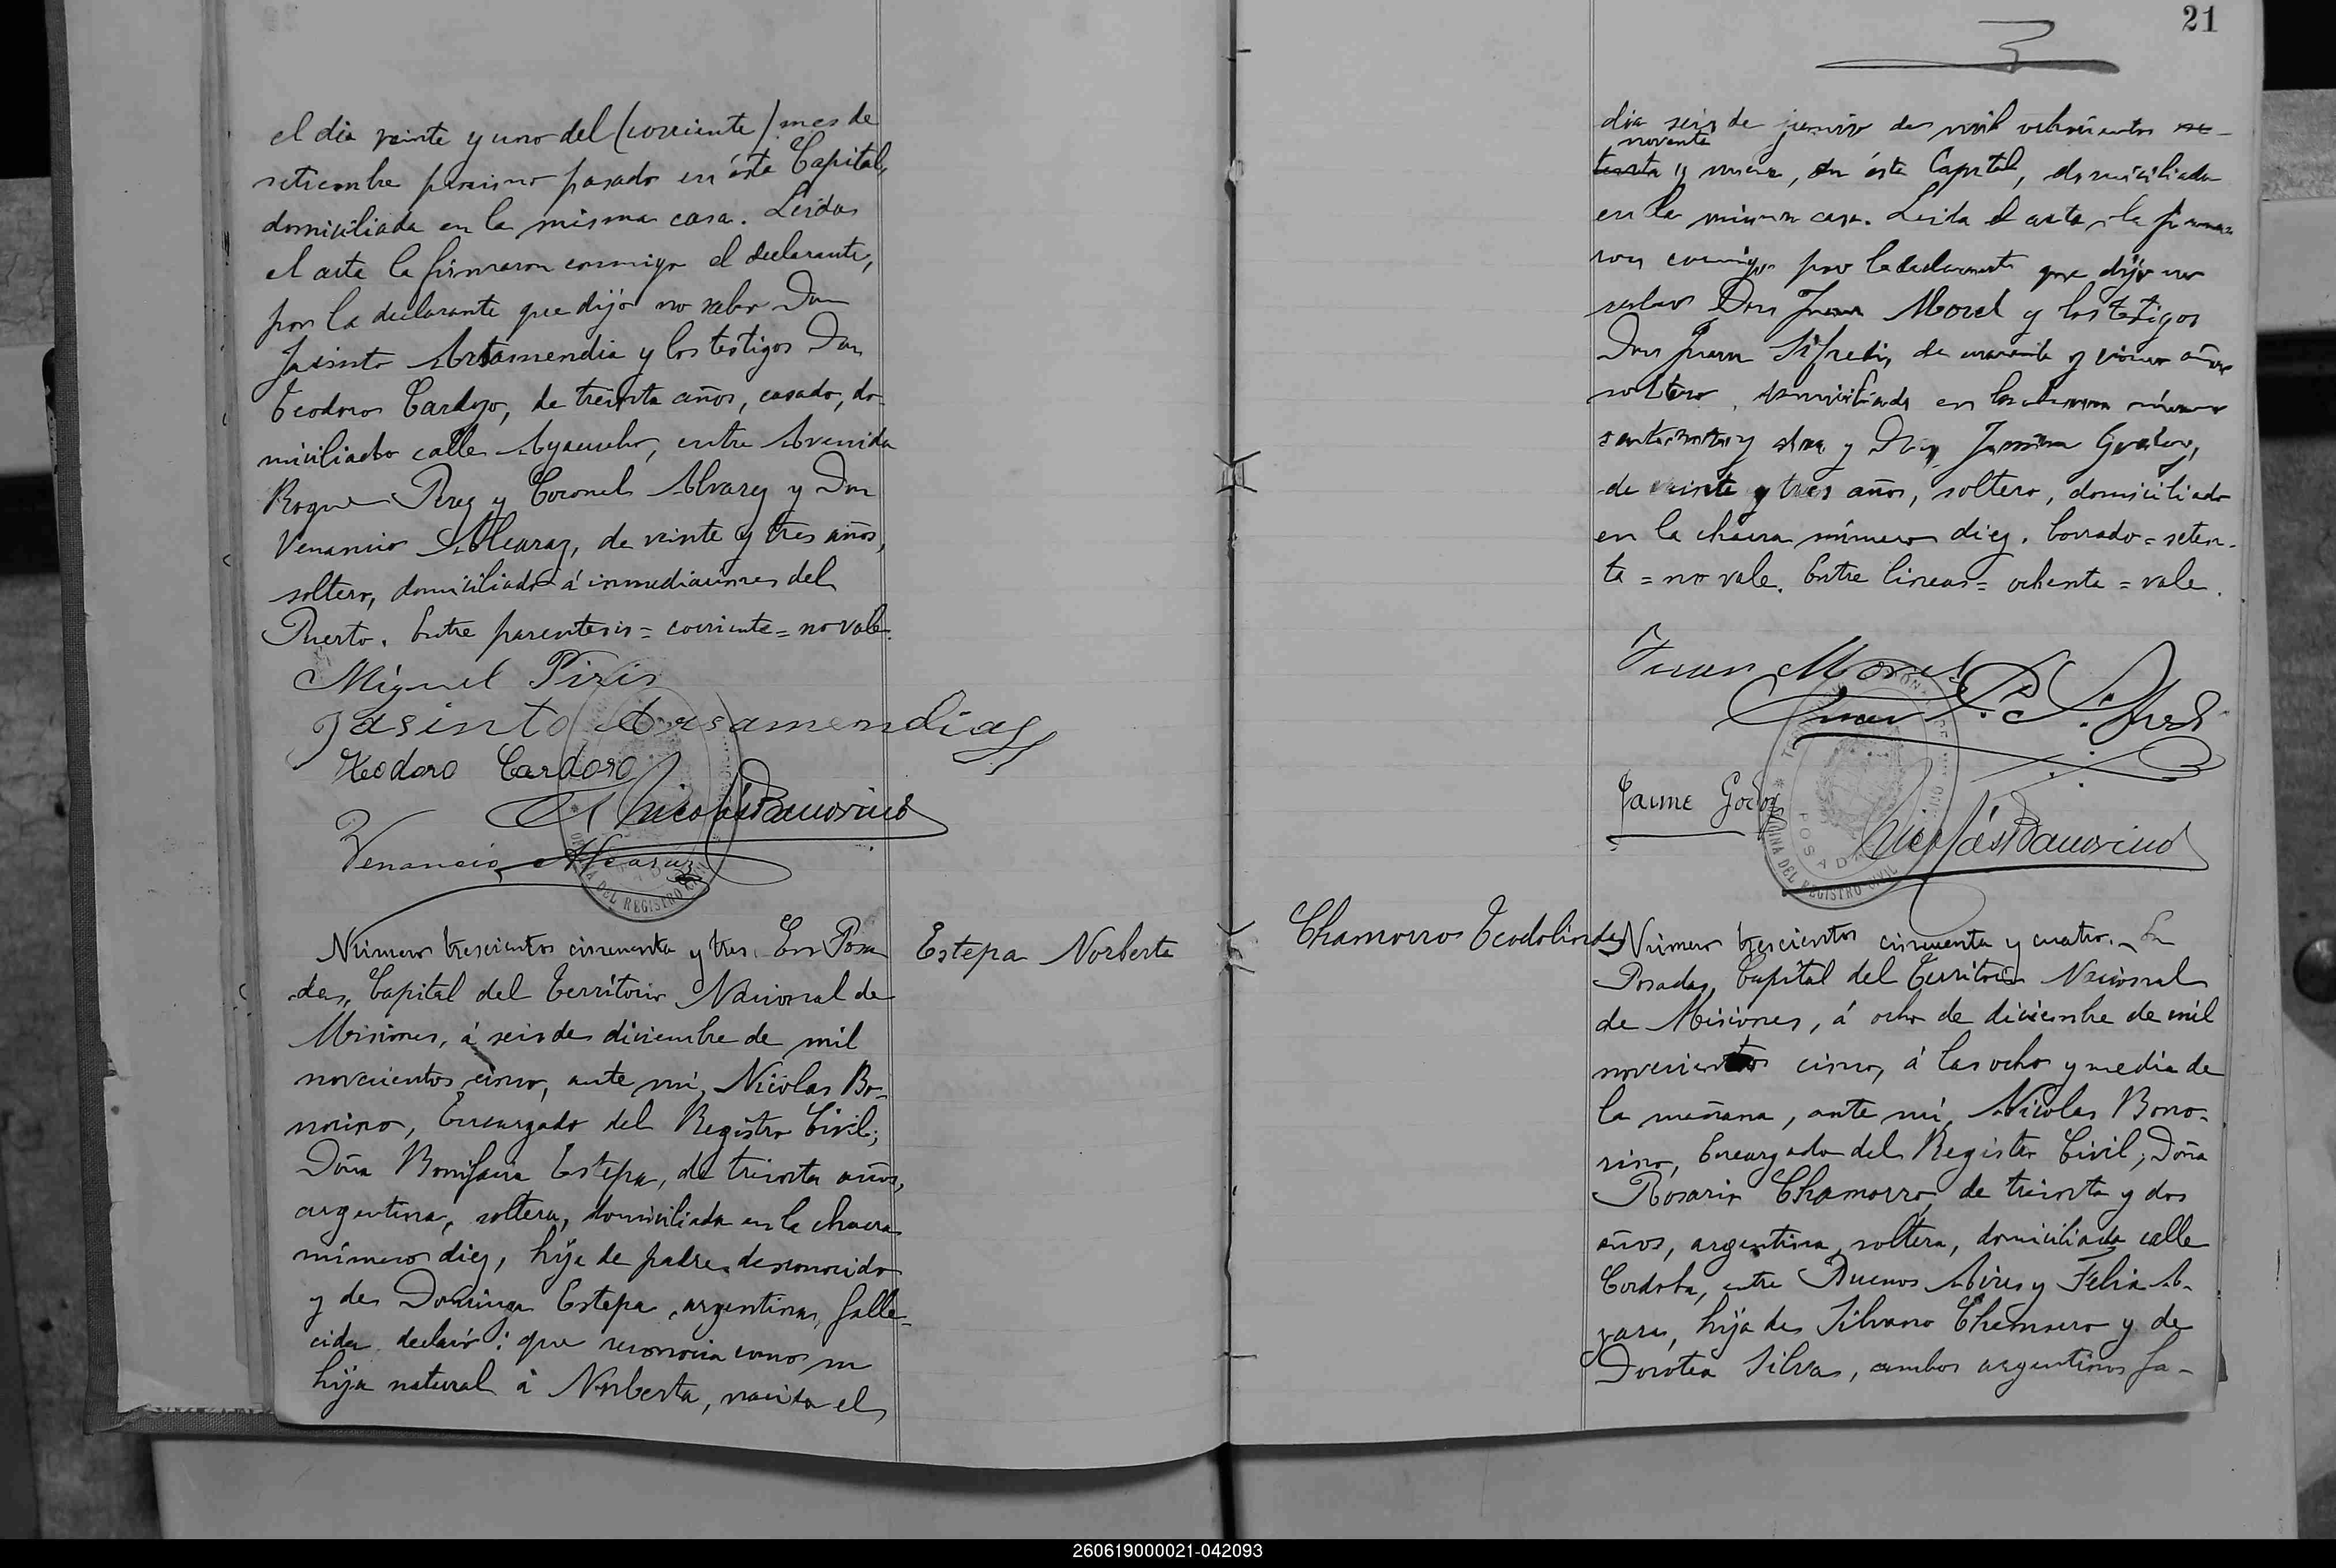 el dia veinte y uno del (corriente) mes de
setiembre proximo pasado en ésta Capital,
domiciliada en la misma casa. Leida
el acta la firmaron conmigo el declarante,
por la declarante que dijo no saber Don
Jasinto Artamendia y los testigos Don
Teodoro Cardozo, de treinta años, casado, do-
miciliado calle Ayacucho, entre Avenida
Roque Perez y Coronel Alvarez y Don
Venancio Alcaraz, de veinte y tres años,
soltero, domiciliado á inmediaciones del
Puerto. Entre parentesis = corriente = no vale.
Miguel Piris
Jasinto Artamendia
Teodoro Cardoso
Nicolás Bonorino
Venancio Alcaraz
Número trescientos cincuenta y tres. En Posa
das, Capital del Territorio Nacional de
Misiones, á seis de diciembre de mil
novecientos cinco, ante mi, Nicolas Bo-
norino, Encargado del Registro Civil;
Doña Bonifacia Estepa, de treinta años,
argentina, soltera, domiciliada en la chacra
número diez, hija de padre desconocido
y de Dominga Estepa, argentina, falle-
cida, declaró: que reconocia como su
hija natural á Norberta, nacida el
Estepa Norberta
21
dia seis de junio de mil ochocientos se-
noventa
tenta y nueve, en ésta Capital, domiciliada
en la misma casa. Leida el acta, la firma-
ron conmigo por la declarante que dijo no
saber Don Juan Morel y los testigos
Don Juan Sifredi, de cuarenta y cinco años
soltero, domiciliado en la chacra número
y Don Jaime Godoy,
de veinte y tres años, soltero, domiciliado
en la chacra número diez. Borrado = seten-
ta = no vale. Entre lineas = ochenta = vale.
Juan Morel
Juan P. Sifredi
Jaime Godoy
Nicolás Bonorino
POSADAS
OFICINA DEL REGISTRO CIVIL
Chamorro Teodolinda
Número trescientos cincuenta y cuatro. En
Posadas, Capital del Territorio Nacional
de Misiones, á ocho de diciembre de mil
novecientos cinco, á las ocho y media de
la mañana, ante mi, Nicolas Bono-
rino, Encargado del Registro Civil; Doña
Rosario Chamorro, de treinta y dos
años, argentina, soltera, domiciliada calle
Cordoba, entre Buenos Aires y Felix A-
zara, hija de Silvano Chamorro y de
Dorotea Silvas, ambos argentinos fa-
260619000021-042093